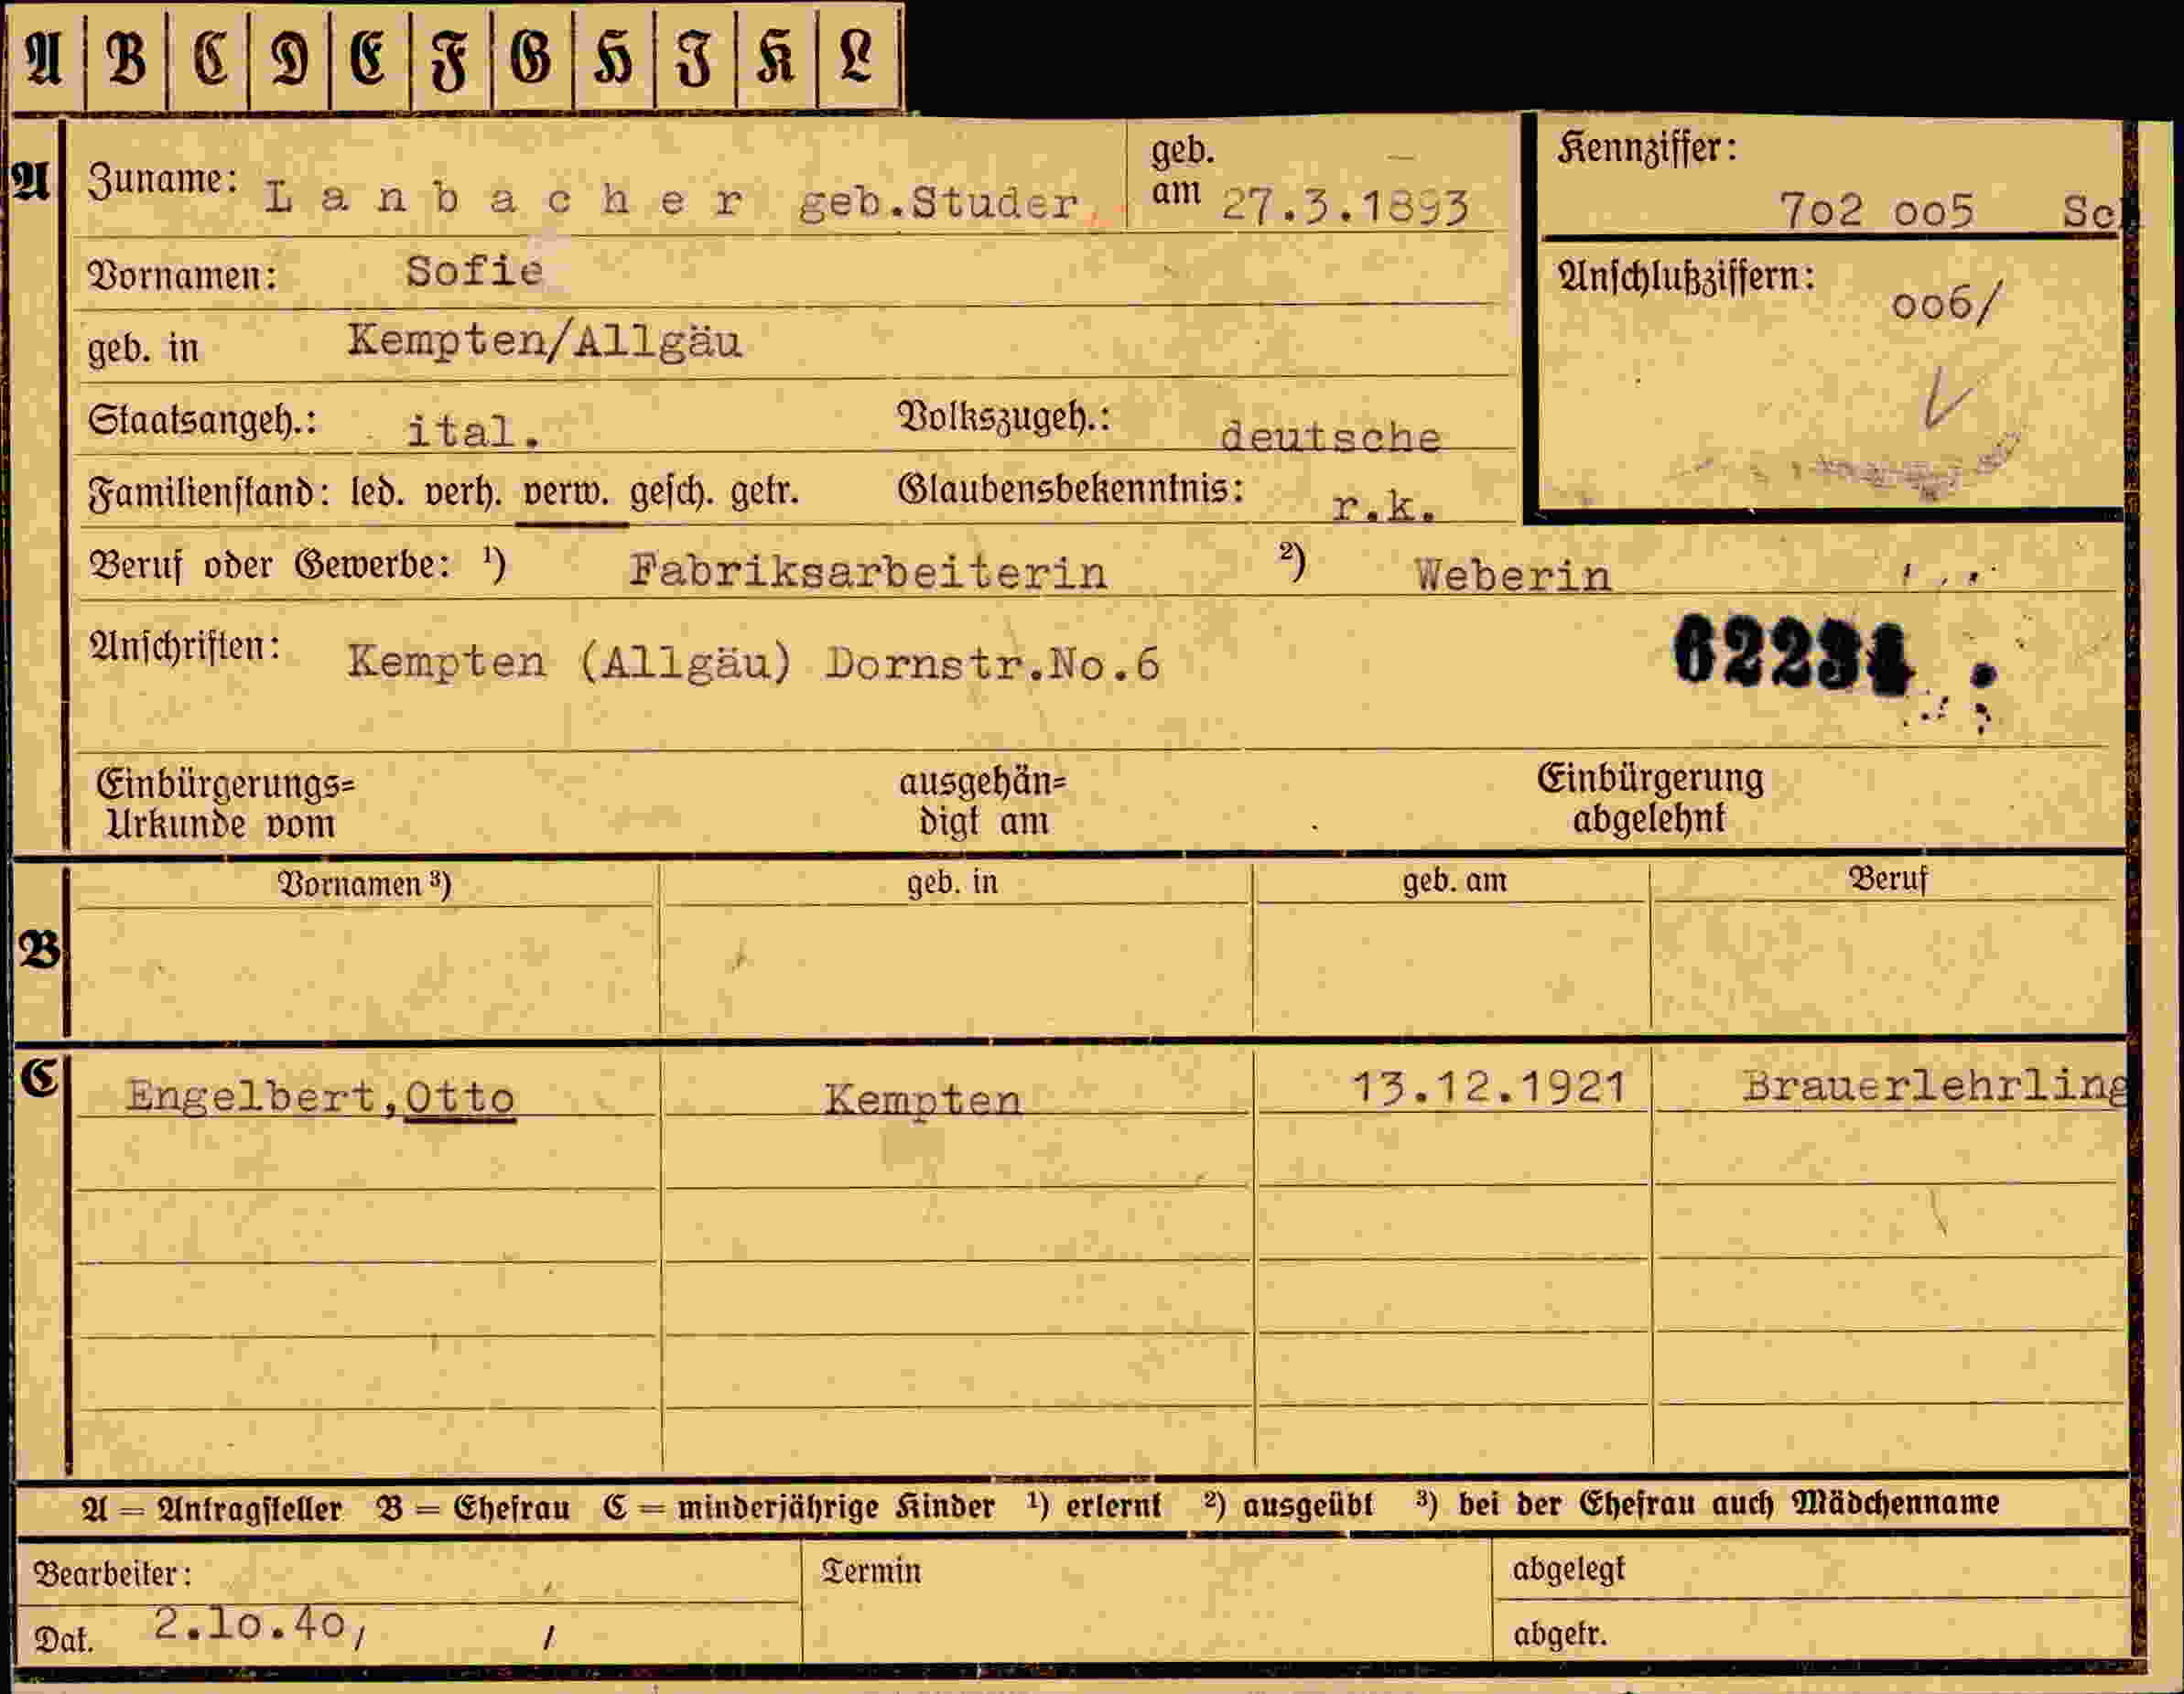 A B C D E F G H I K L
A Zuname: Lanbacher geb.Studer geb. am 27.3.1893
Kennziffer: 7o2 oo5 Sc
Vornamen: Sofie
Anschlußziffern: oo6/
geb. in Kempten/Allgäu
Staatsangeh.: ital. Volkszugeh.: deutsche
Familienstand: led. verh. verw. gesch. getr. Glaubensbekenntnis: r.k.
Beruf oder Gewerbe: ¹) Fabriksarbeiterin ²) Weberin
Anschriften: Kempten (Allgäu) Dornstr.No.6
62234
Einbürgerungs= Urkunde vom ausgehän= digt am Einbürgerung abgelehnt
Vornamen ³) geb. in geb. am Beruf
B
C Engelbert,Otto Kempten 13.12.1921 Brauerlehrling
A = Antragsteller B = Ehefrau C = minderjährige Kinder ¹) erlernt ²) ausgeübt ³) bei der Ehefrau auch Mädchenname
Bearbeiter: Termin abgelegt
Dat. 2.1o.4o, abgetr.